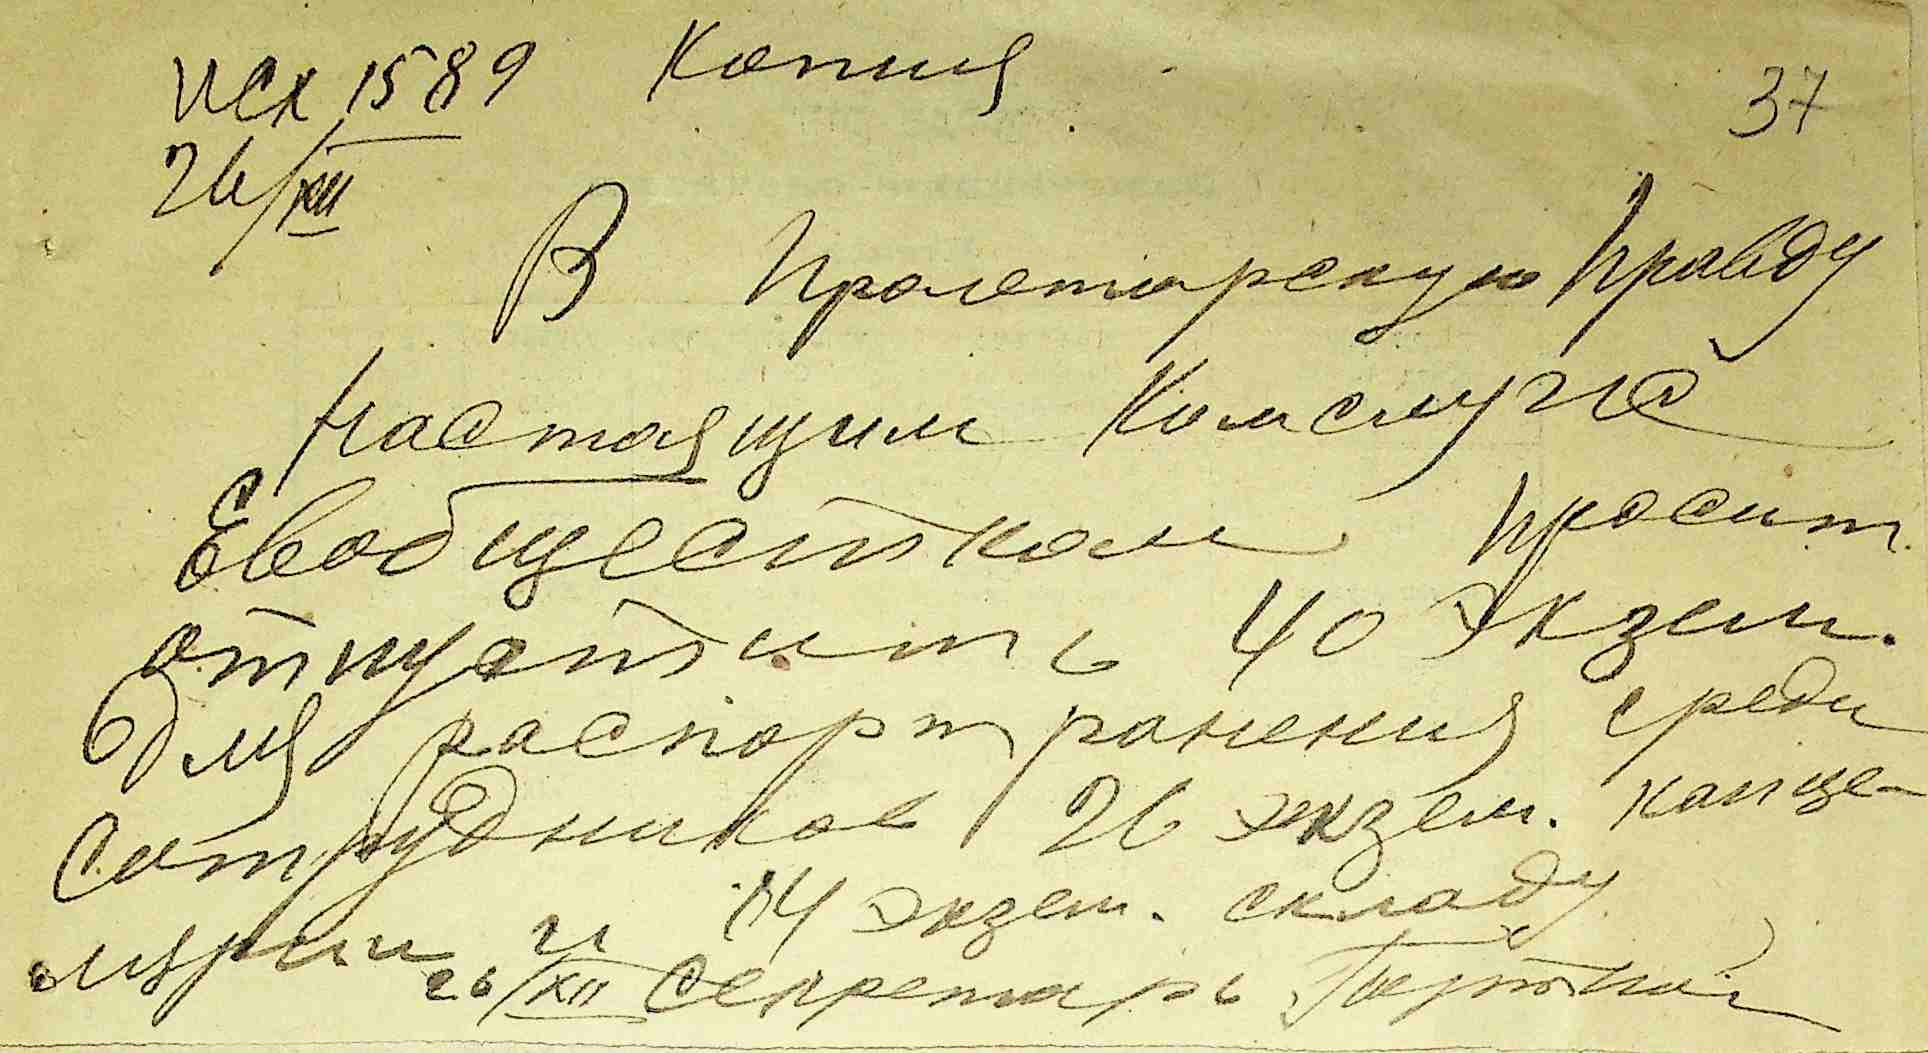 исх 1589 Копия 37
26/XII
В Пролетарскую Правду
Настоящим Комслуж
Евобщестком просит
отпустить 40 экзем.
для распортранения среди
сотрудников 26 экзем. канце-
лярии и 14 экзем. складу
26/XII Секретарь Портной